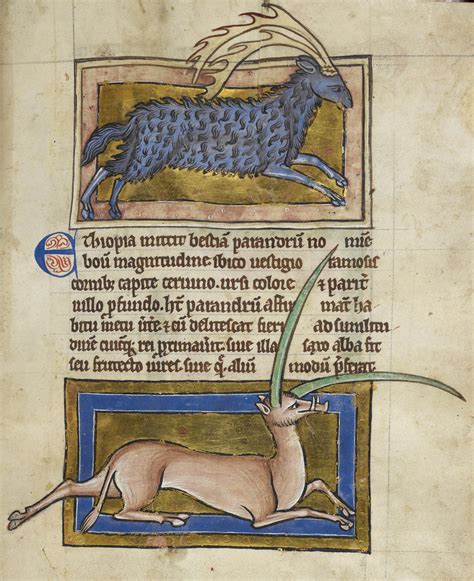 Ethiopia mittit bestiam parandrum no mine
boum magnitudine ibico uestigio ramosis
cornibꝫ capite ceruino. ursi colore & parit̄
uillo ꝓfundo. hc̄ parandrum affir mant ha
bitū metu ūtte & cū delitescat fieri ad similitu
dinē cuicūꝗ rei ꝓximauit. siue illa saxo alba sit
seu frutecto uiret. siue q̄ alium modum p̄ferat.